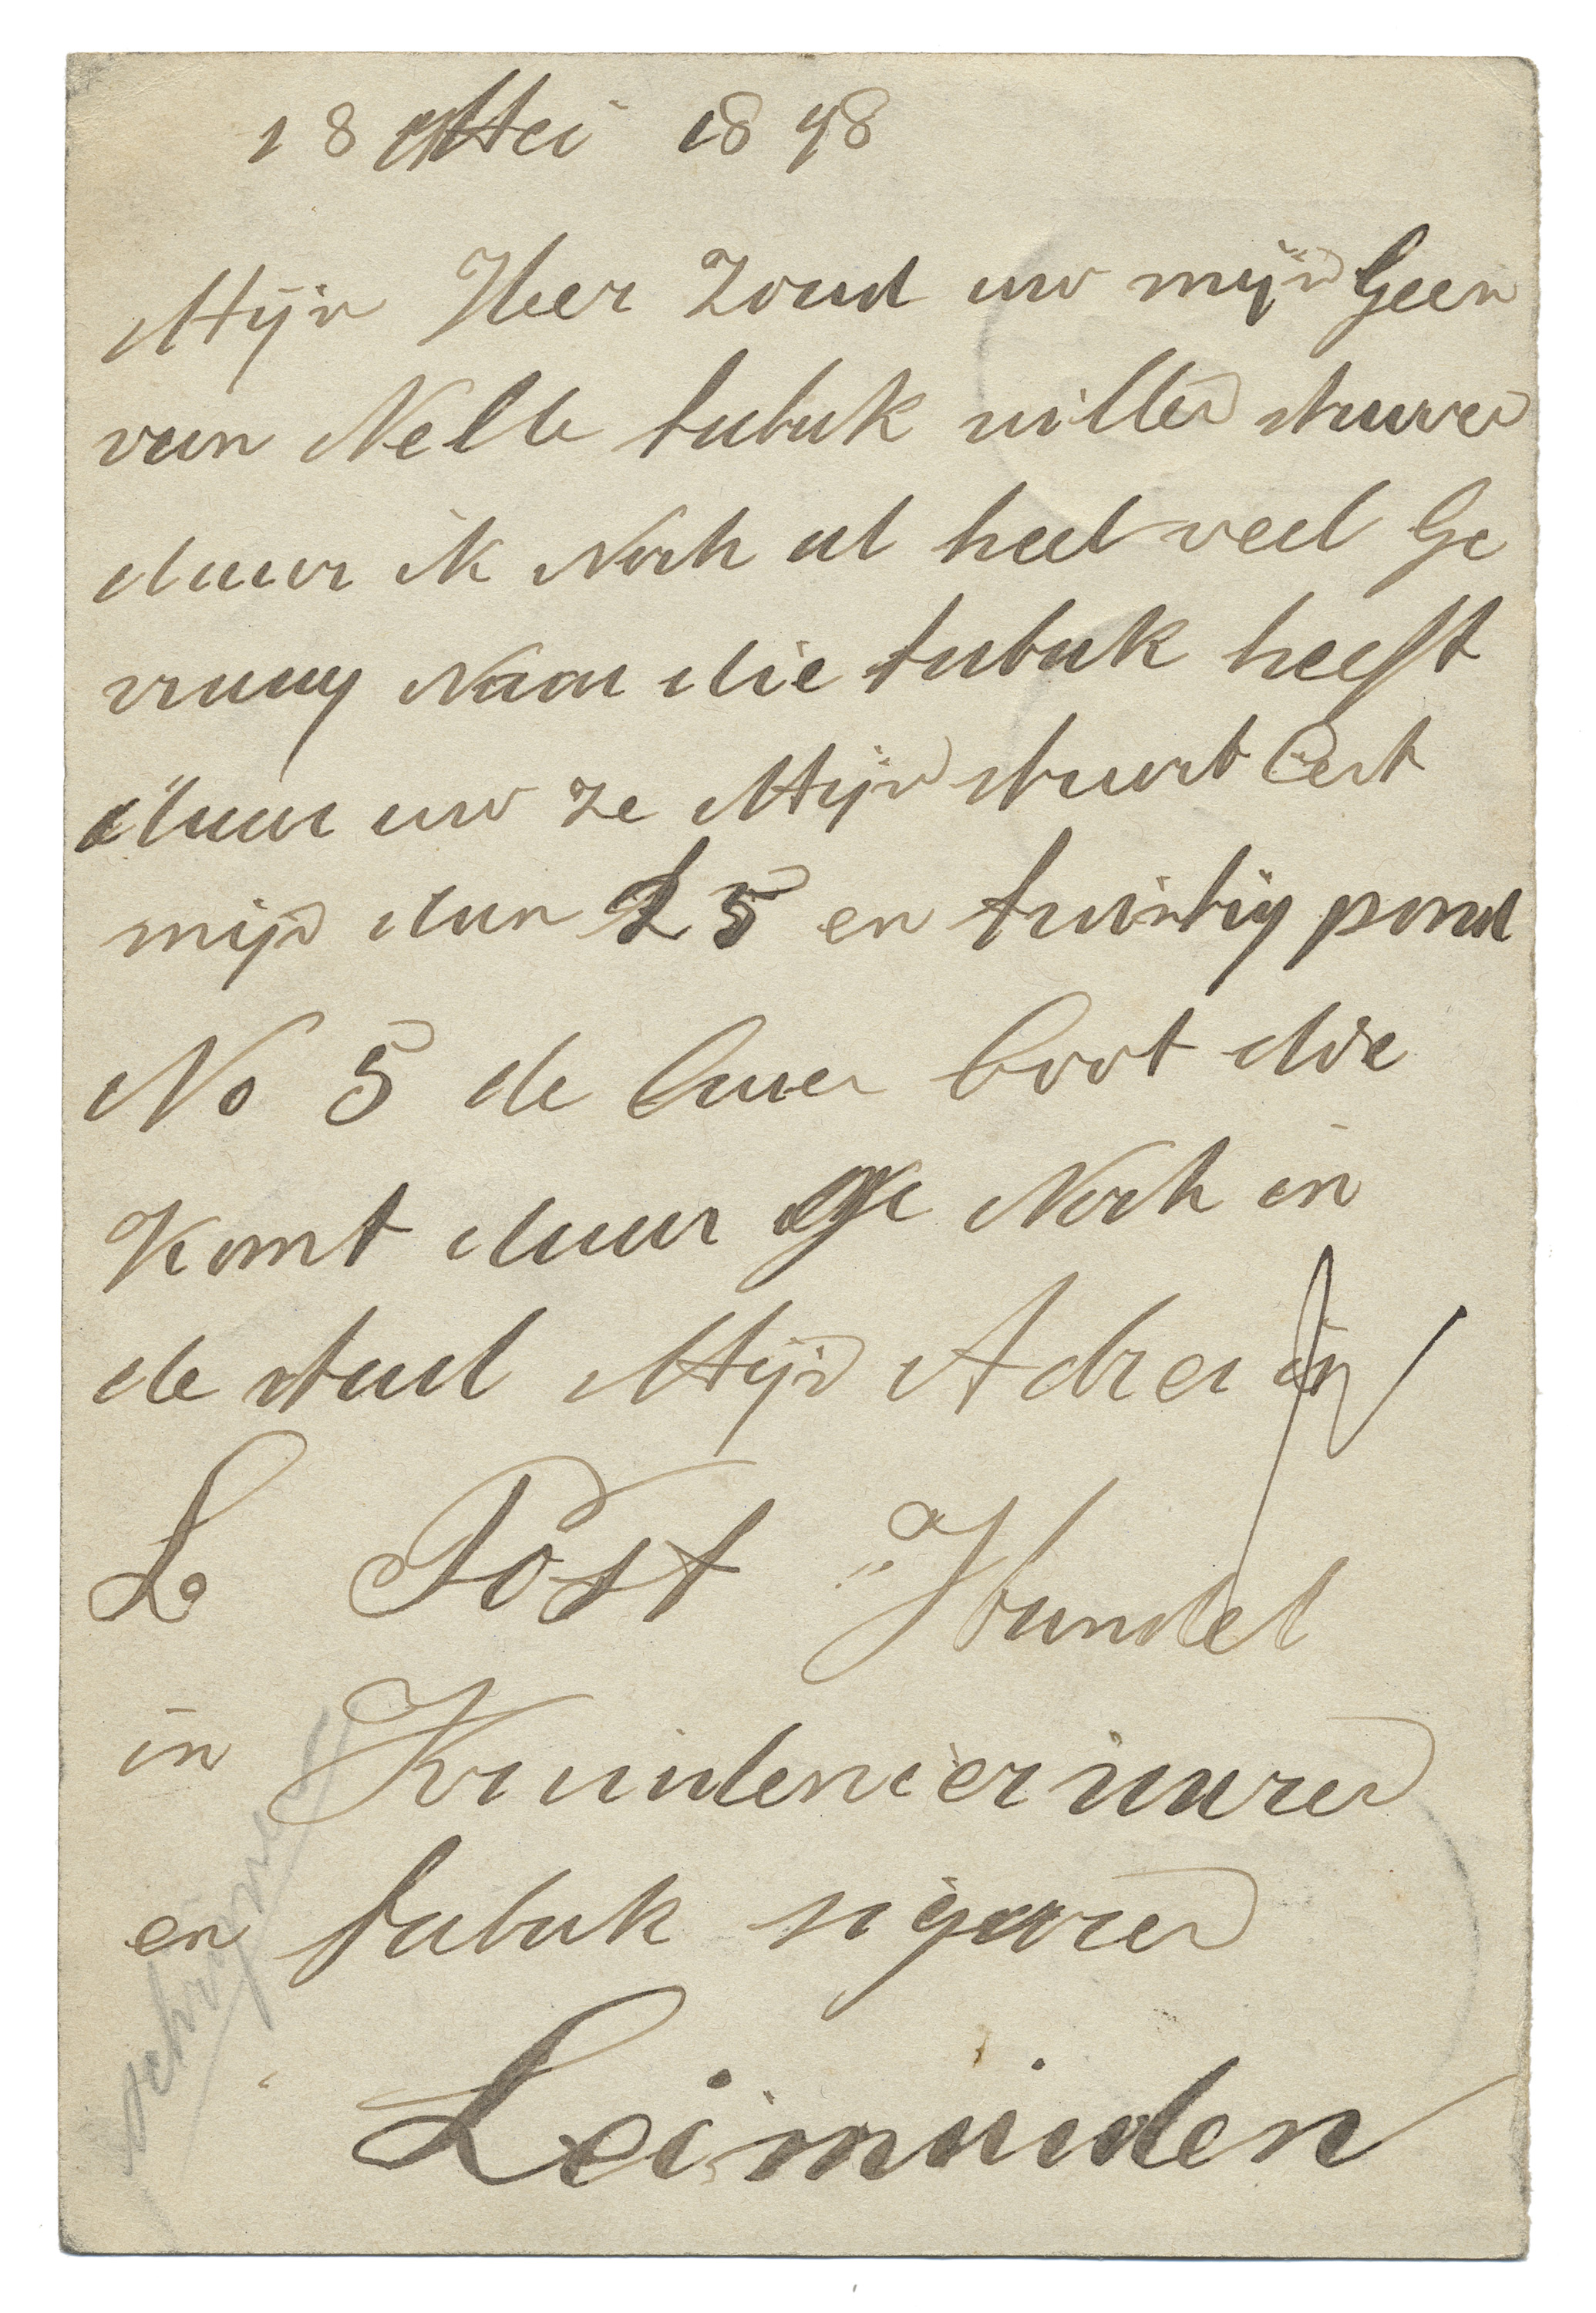 18 Mei 1898
Mijn Heer Zoud uw mijn Geen
van Nelle tabak willen stuuren
daar ik Noch al heel veel Ge
vraag Naar die tabak heeft
daar uw ze Mijn stuurt Eest
mijn dan 25 en twintig pond
No 5 de boot die
Komt daar Noch in
de stad Mijn Adres is
L Post Handel
in Kruidenierwaren
en tabak sigaren
Leimuiden